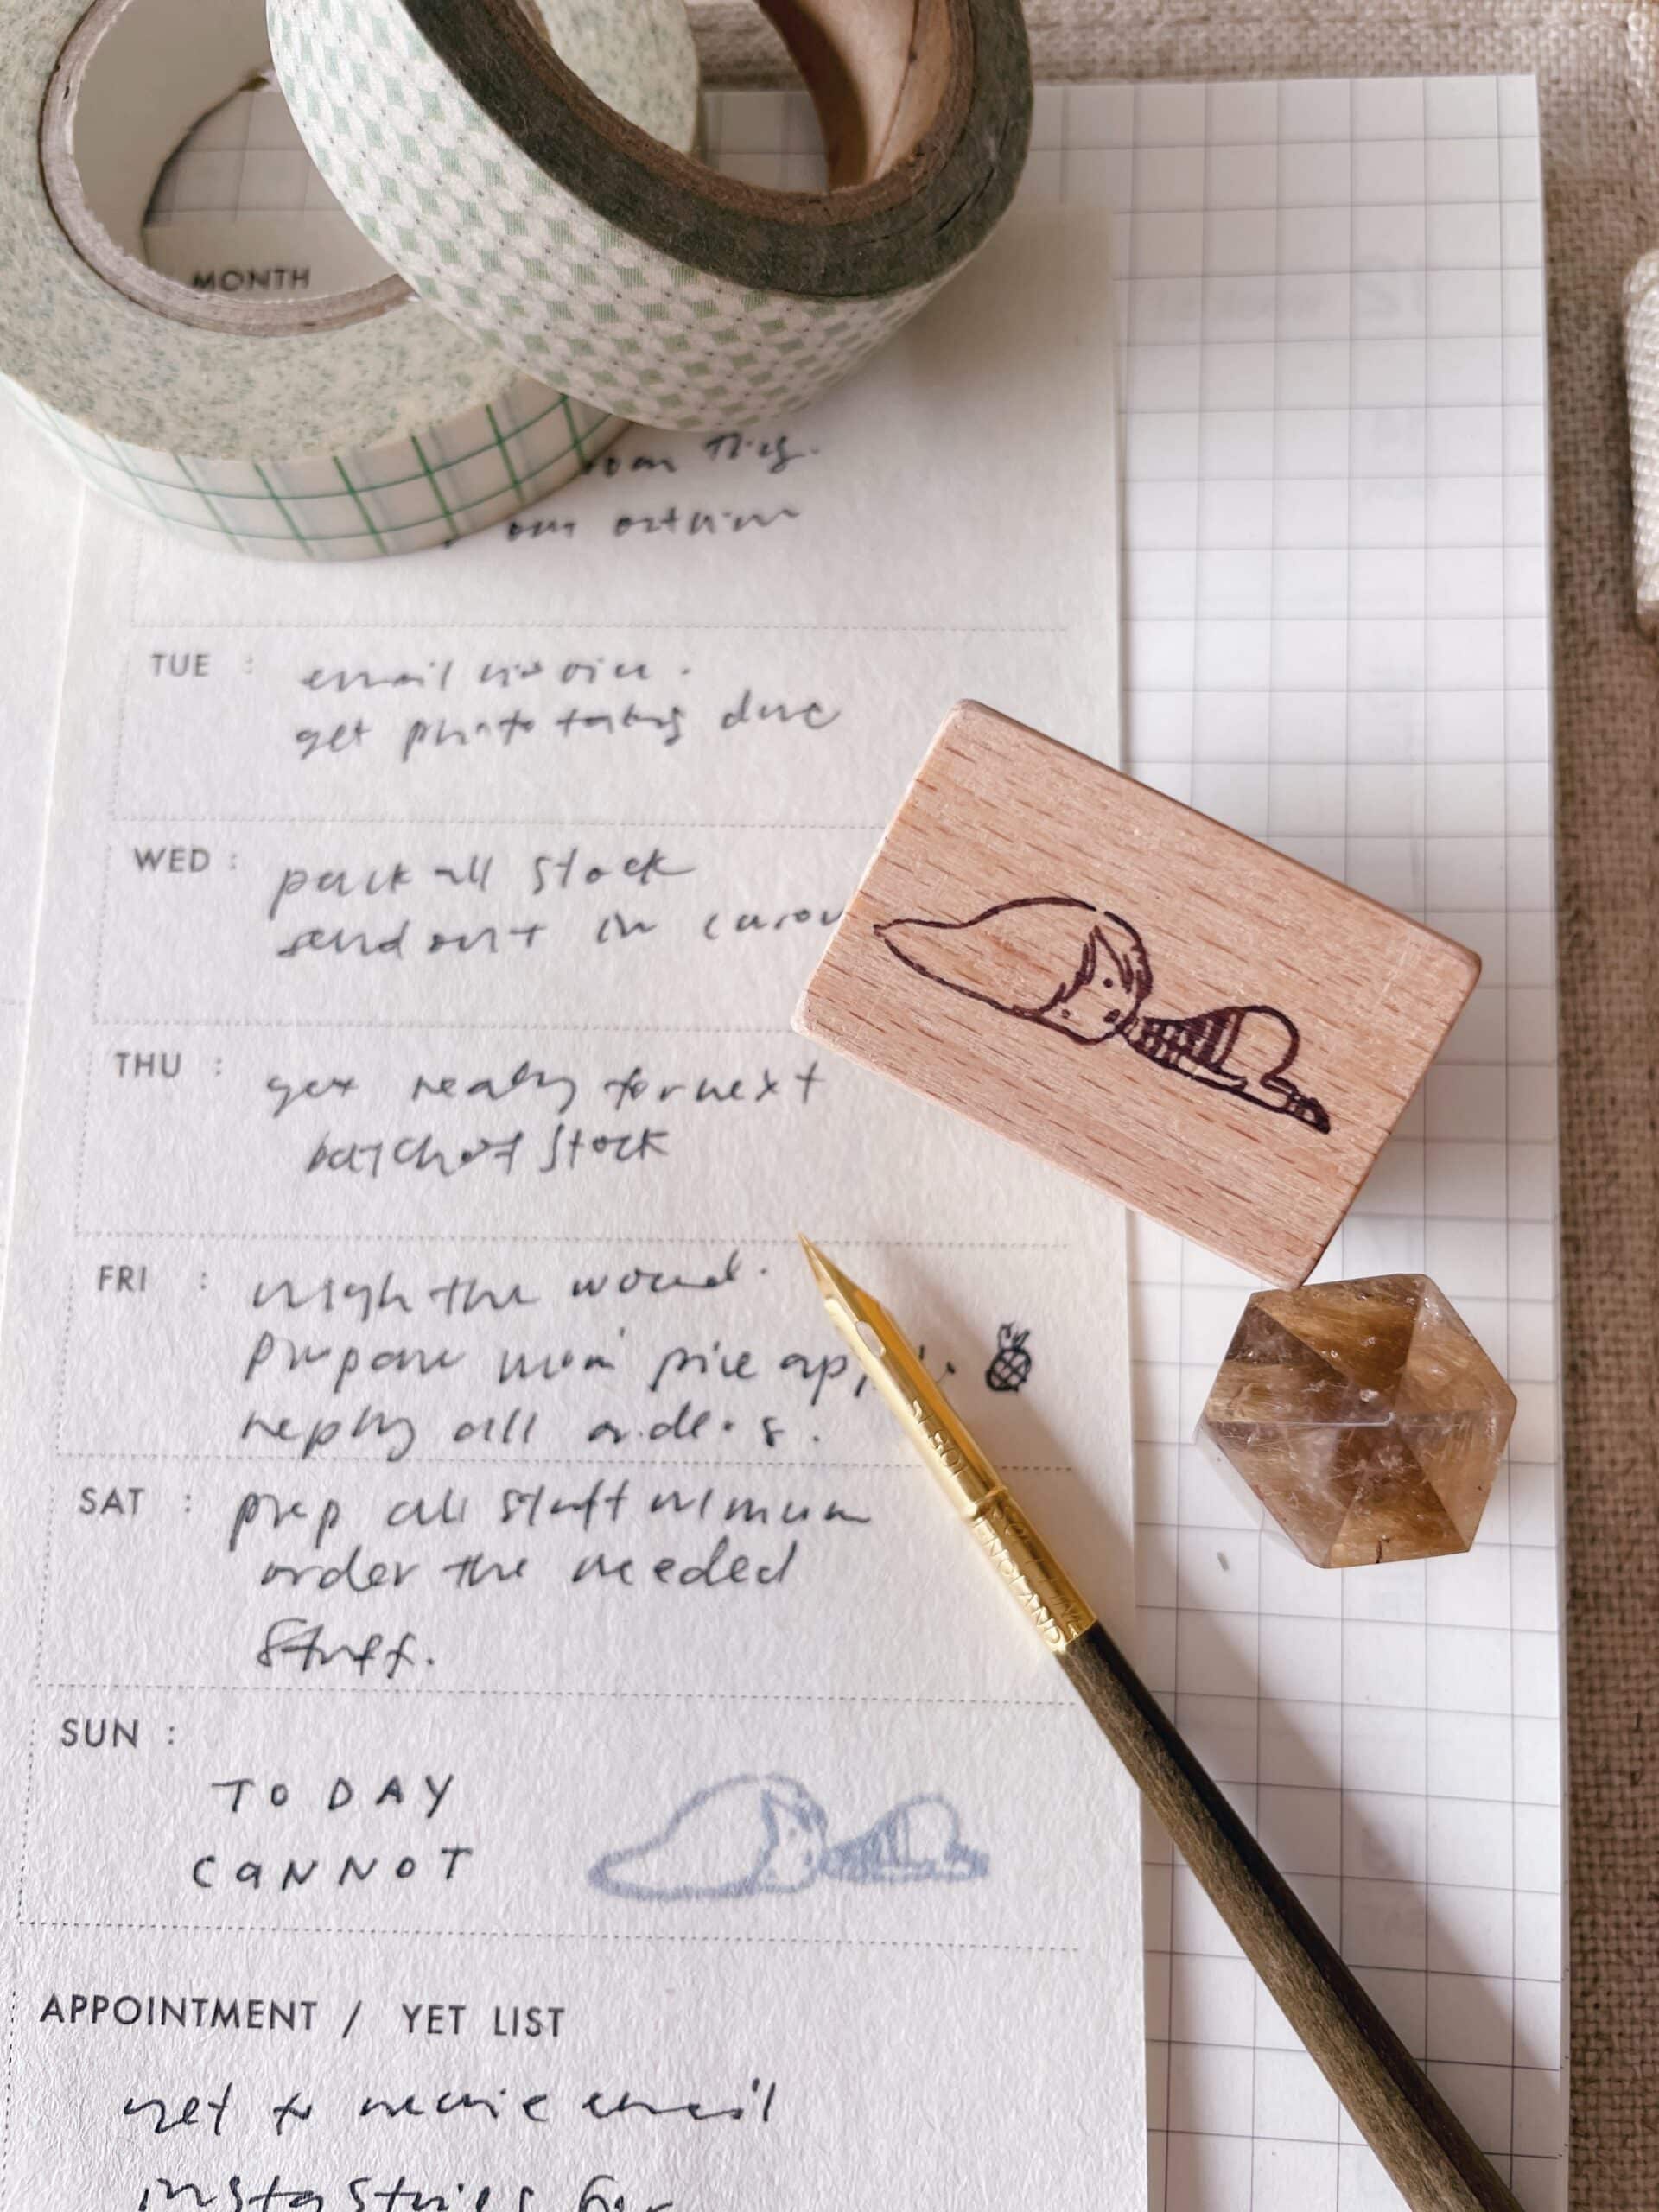 MONTH
TUE : email invoice.
get photo taking done
WED : pack all stock
send out in
THU : get ready for next
batch of stock
FRI : weigh the wound.
prepare mom pine
reply all orders.
SAT : prep all stuff
order the needed
stuff.
SUN :
TODAY
CANNOT
APPOINTMENT / YET LIST
yet to receive email
insta stories for
ENGLAND